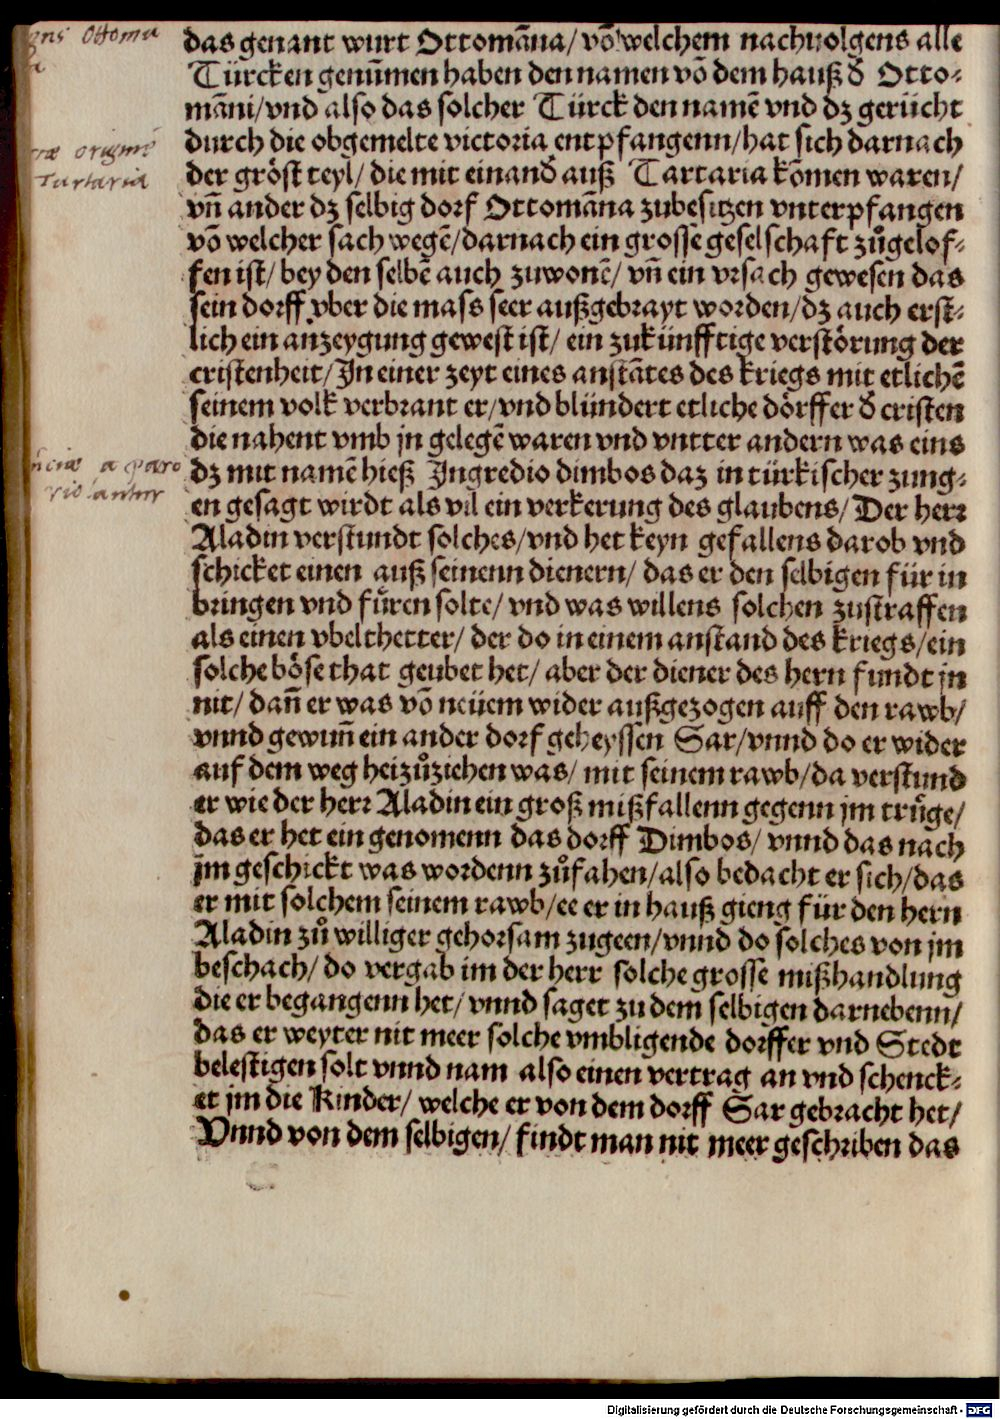 das genant wurt Ottomāna/ vō welchem nachuolgens alle
Türcken genūmen haben den namen vō dem hauß đ Otto-
māni/ vnd also das solcher Türck den namē vnd dz gerücht
durch die obgemelte victoria entpfangenn/ hat sich darnach
der gröst teyl/ die mit einanđ auß Tartaria kōmen waren/
vn̄ ander dz selbig dorf Ottomāna zubesitzen vnterpfangen
vō welcher sach wegē/ darnach ein grosse geselschaft zůgelof-
fen ist/ bey den selbē auch zuwonē/ vn̄ ein vrsach gewesen das
sein dorff vber die mass seer außgebrayt worden/ dz auch erst-
lich ein anzeygung gewest ist/ ein zukünfftige verstörung der
cristenheit/ In einer zeyt eines anstātes des kriegs mit etlichē
seinem volk verbrant er/ vnd blündert etliche dörffer đ cristen
die nahent vmb jn gelegē waren vnd vntter andern was eins
dz mit namē hieß Ingredio dimbos daz in türkischer zung-
en gesagt wirdt als vil ein verkerung des glaubens/ Der herr
Aladin verstundt solches/ vnd het keyn gefallens darob vnd
schicket einen auß seinenn dienern/ das er den selbigen für in
bringen vnd fůren solte/ vnd was willens solchen zustraffen
als einen vbelthetter/ der do in einem anstand des kriegs/ ein
solche böse that geubet het/ aber der diener des hern fundt jn
nit/ dan̄ er was vō neüem wider außgezogen auff den rawb/
vnnd gewun̄ ein ander dorf geheyssen Sar/ vnnd do er wider
auf dem weg heizůziehen was/ mit seinem rawb/ da verstund
er wie der herr Aladin ein groß mißfallenn gegenn jm trůge/
das er het ein genomenn das dorff Dimbos/ vnnd das nach
jm geschickt was wordenn zůfahen/ also bedacht er sich/ das
er mit solchem seinem rawb/ ee er in hauß gieng für den hern
Aladin zů williger gehorsam zugeen/ vnnd do solches von jm
beschach/ do vergab im der herr solche grosse mißhandlung
die er begangenn het/ vnnd saget zu dem selbigen darnebenn/
das er weyter nit meer solche vmbligende dorffer vnd Stedt
belestigen solt vnnd nam also einen vertrag an vnd schenck-
et jm die Kinder/ welche er von dem dorff Sar gebracht het/
Vnnd von dem selbigen/ findt man nit meer geschriben das
Ottoma
origine
Tartaria
Digitalisierung gefördert durch die Deutsche Forschungsgemeinschaft - DFG